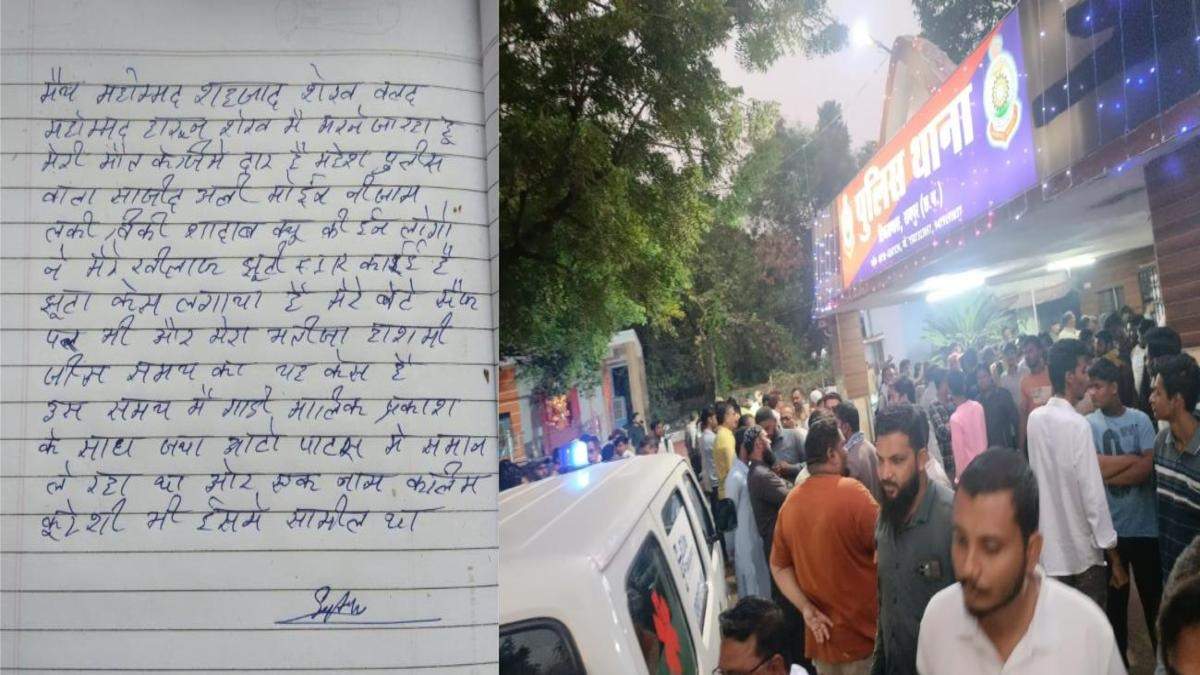 मैय महोम्मद शहजाद शेख वलद
महोम्मद हारून शेख मै मरने जा रहा हू
मेरी मौत के जिमे दार है महेश पुलीस
वाला साजीद अली मोईन नीजाम
लकी विकी शादाब क्यू की ईन लोगो
ने मेरे खीलाफ झूटी FIR काईई है
झूटा केस लगाया है मेरे बेटे सैफ
पर भी और मेरा भतीजा हाशमी
जीस समय का यह केस है
इस समय मै गाडी मालिक प्रकाश
के साथ जया ओटो पाटस मे समान
ले रहा था ओर एक नाम कलिम
कूरेशी भी ईसमे सामील था
पुलिस थाना
रायपुर (छ.ग.)